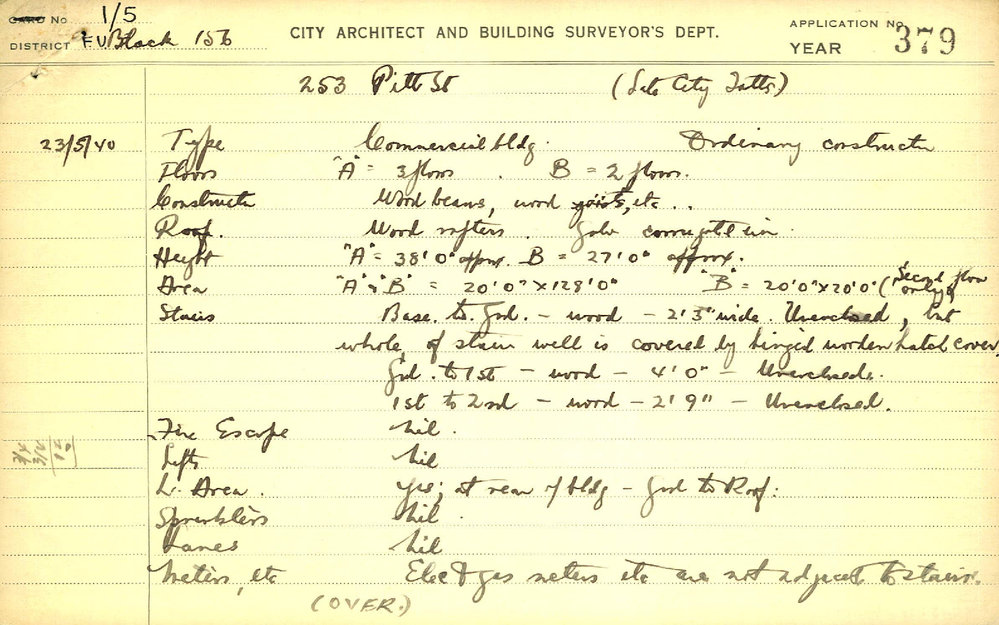 CARD No 1/5
DISTRICT Block 156
CITY ARCHITECT AND BUILDING SURVEYOR'S DEPT.
APPLICATION No.
YEAR 379
253 Pitt St (Site City Tatts)
23/5/40 Type Commercial bldg. Ordinary constructn
Floors "A" = 3 floors. B = 2 floors.
Constructn Wood beams, wood joists, etc..
Roof. Wood rafters. Galv corrugated iron
Height "A" = 38'0" approx. B = 27'0" approx.
Area "A" & "B" = 20'0" x 128'0" "B" = 20'0" x 20'0" (Second floor only)
Stairs Base. to Grd. - wood - 2'3" wide. Unenclosed, but
whole of stair well is covered by hinged wooden hatch cover.
Grd. to 1st - wood - 4'0" - Unenclosed.
1st to 2nd - wood - 2'9" - Unenclosed.
Fire Escape Nil.
Lifts Nil
L. Area. Yes; at rear of bldg - Grd to Roof.
Sprinklers Nil.
Lanes Nil
Meters, etc Elec & gas meters etc are not adjacent to stairs.
(OVER.)